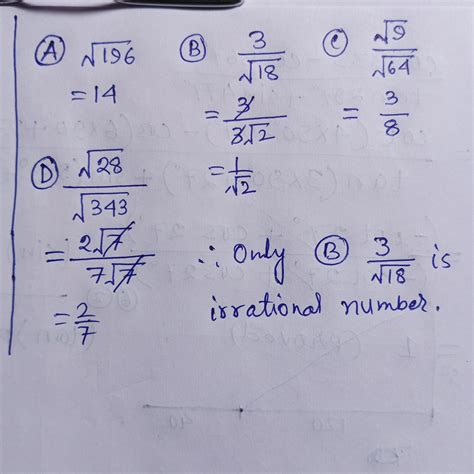 Ⓐ √196
= 14
Ⓑ 3/√18
= 3/3√2
= 1/√2
Ⓒ √9/√64
= 3/8
Ⓓ √28/√343
= 2√7/7√7
= 2/7
∴ Only Ⓑ 3/√18 is
irrational number.